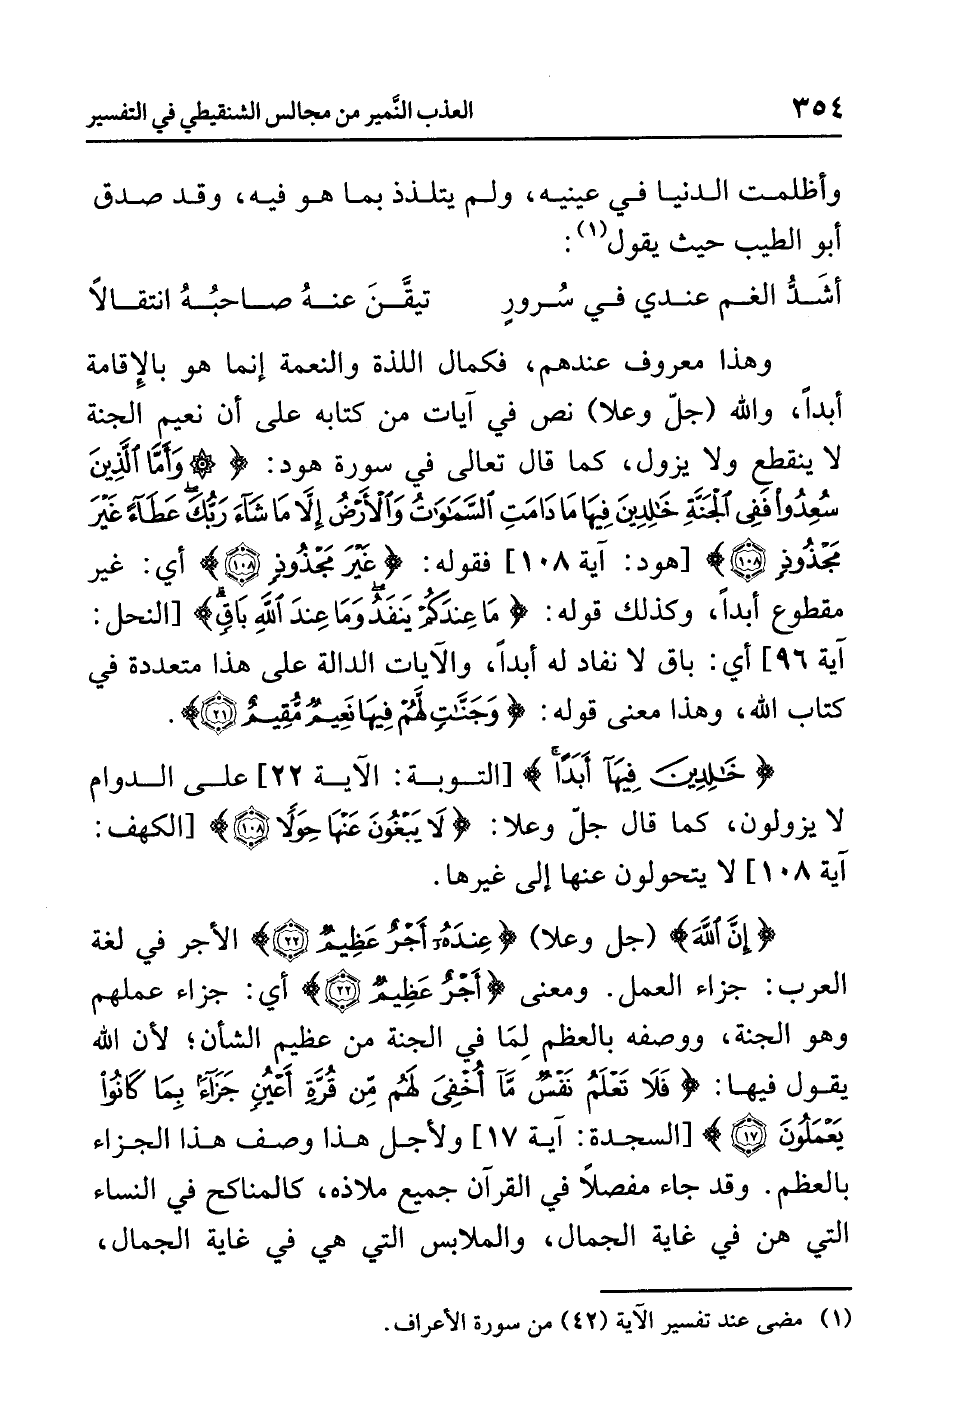 ٣٥٤ العذب النَّمير من مجالس الشنقيطي في التفسير
وأظلمت الدنيا في عينيه، ولم يتلذذ بما هو فيه، وقد صدق
أبو الطيب حيث يقول(١):
أشَدُّ الغم عندي في سُرورٍ تيقَّنَ عنهُ صاحبُهُ انتقالاً
وهذا معروف عندهم، فكمال اللذة والنعمة إنما هو بالإقامة
أبداً، والله (جلّ وعلا) نص في آيات من كتابه على أن نعيم الجنة
لا ينقطع ولا يزول، كما قال تعالى في سورة هود: ﴿ ۞ وَأَمَّا ٱلَّذِينَ
سُعِدُوا۟ فَفِى ٱلْجَنَّةِ خَـٰلِدِينَ فِيهَا مَا دَامَتِ ٱلسَّمَـٰوَٰتُ وَٱلْأَرْضُ إِلَّا مَا شَآءَ رَبُّكَ ۖ عَطَآءً غَيْرَ
مَجْذُوذٍ ١٠٨﴾ [هود: آية ١٠٨] فقوله: ﴿غَيْرَ مَجْذُوذٍ ١٠٨﴾ أي: غير
مقطوع أبداً، وكذلك قوله: ﴿ مَا عِندَكُمْ يَنفَدُ ۖ وَمَا عِندَ ٱللَّهِ بَاقٍ ۗ﴾ [النحل:
آية ٩٦] أي: باق لا نفاد له أبداً، والآيات الدالة على هذا متعددة في
كتاب الله، وهذا معنى قوله: ﴿ وَجَنَّـٰتٍ لَّهُمْ فِيهَا نَعِيمٌ مُّقِيمٌ ٢١﴾.
﴿ خَـٰلِدِينَ فِيهَآ أَبَدًا ۚ ﴾ [التوبة: الآية ٢٢] على الدوام
لا يزولون، كما قال جلّ وعلا: ﴿ لَا يَبْغُونَ عَنْهَا حِوَلًا ١٠٨﴾ [الكهف:
آية ١٠٨] لا يتحولون عنها إلى غيرها.
﴿إِنَّ ٱللَّهَ﴾ (جل وعلا) ﴿عِندَهُۥٓ أَجْرٌ عَظِيمٌ ٢٢﴾ الأجر في لغة
العرب: جزاء العمل. ومعنى ﴿أَجْرٌ عَظِيمٌ ٢٢﴾ أي: جزاء عملهم
وهو الجنة، ووصفه بالعظم لِمَا في الجنة من عظيم الشأن؛ لأن الله
يقول فيها: ﴿ فَلَا تَعْلَمُ نَفْسٌ مَّآ أُخْفِىَ لَهُم مِّن قُرَّةِ أَعْيُنٍ جَزَآءًۢ بِمَا كَانُوا۟
يَعْمَلُونَ ١٧﴾ [السجدة: آية ١٧] ولأجل هذا وصف هذا الجزاء
بالعظم. وقد جاء مفصلاً في القرآن جميع ملاذه، كالمناكح في النساء
التي هن في غاية الجمال، والملابس التي هي في غاية الجمال،
(١) مضى عند تفسير الآية (٤٢) من سورة الأعراف.